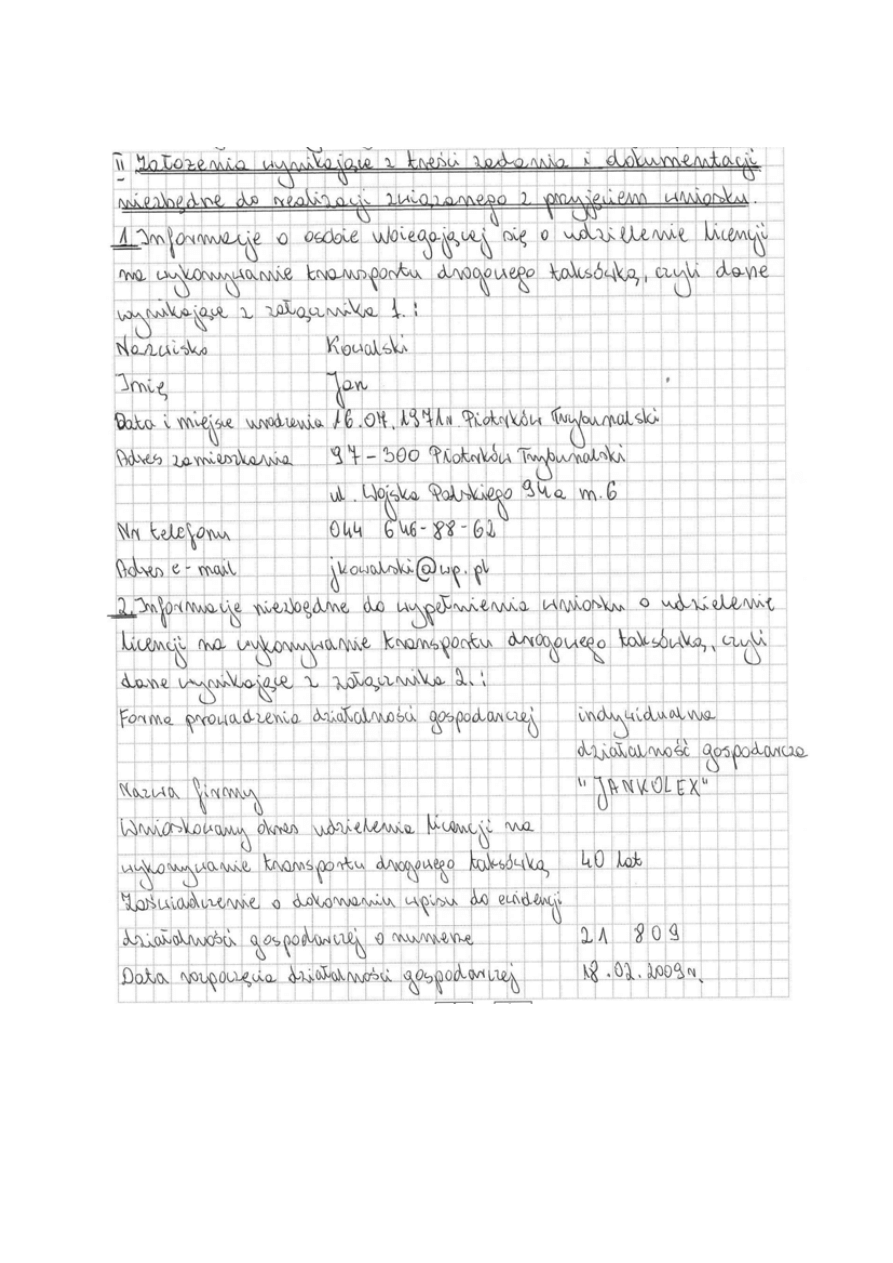 II Założenia wynikające z treści zadania i dokumentacji
niezbędne do realizacji związanego z przyjęciem wniosku.
1. Informacje o osobie ubiegającej się o udzielenie licencji
na wykonywanie transportu drogowego taksówką, czyli dane
wynikające z załącznika 1.:
Nazwisko Kowalski
Imię Jan
Data i miejsce urodzenia 16.07.1971r. Piotrków Trybunalski
Adres zamieszkania 97-300 Piotrków Trybunalski
ul. Wojska Polskiego 94a m.6
Nr telefonu 044 646-88-62
Adres e-mail jkowalski@wp.pl
2. Informacje niezbędne do wypełnienia wniosku o udzielenie
licencji na wykonywanie transportu drogowego taksówką, czyli
dane wynikające z załącznika 2.:
Forma prowadzenia działalności gospodarczej indywidualna
działalność gospodarcza
Nazwa firmy "JANKOLEX"
Wnioskowany okres udzielenia licencji na
wykonywanie transportu drogowego taksówką 40 lat
Zaświadczenie o dokonaniu wpisu do ewidencji
działalności gospodarczej o numerze 21 809
Data rozpoczęcia działalności gospodarczej 18.02.2009r.